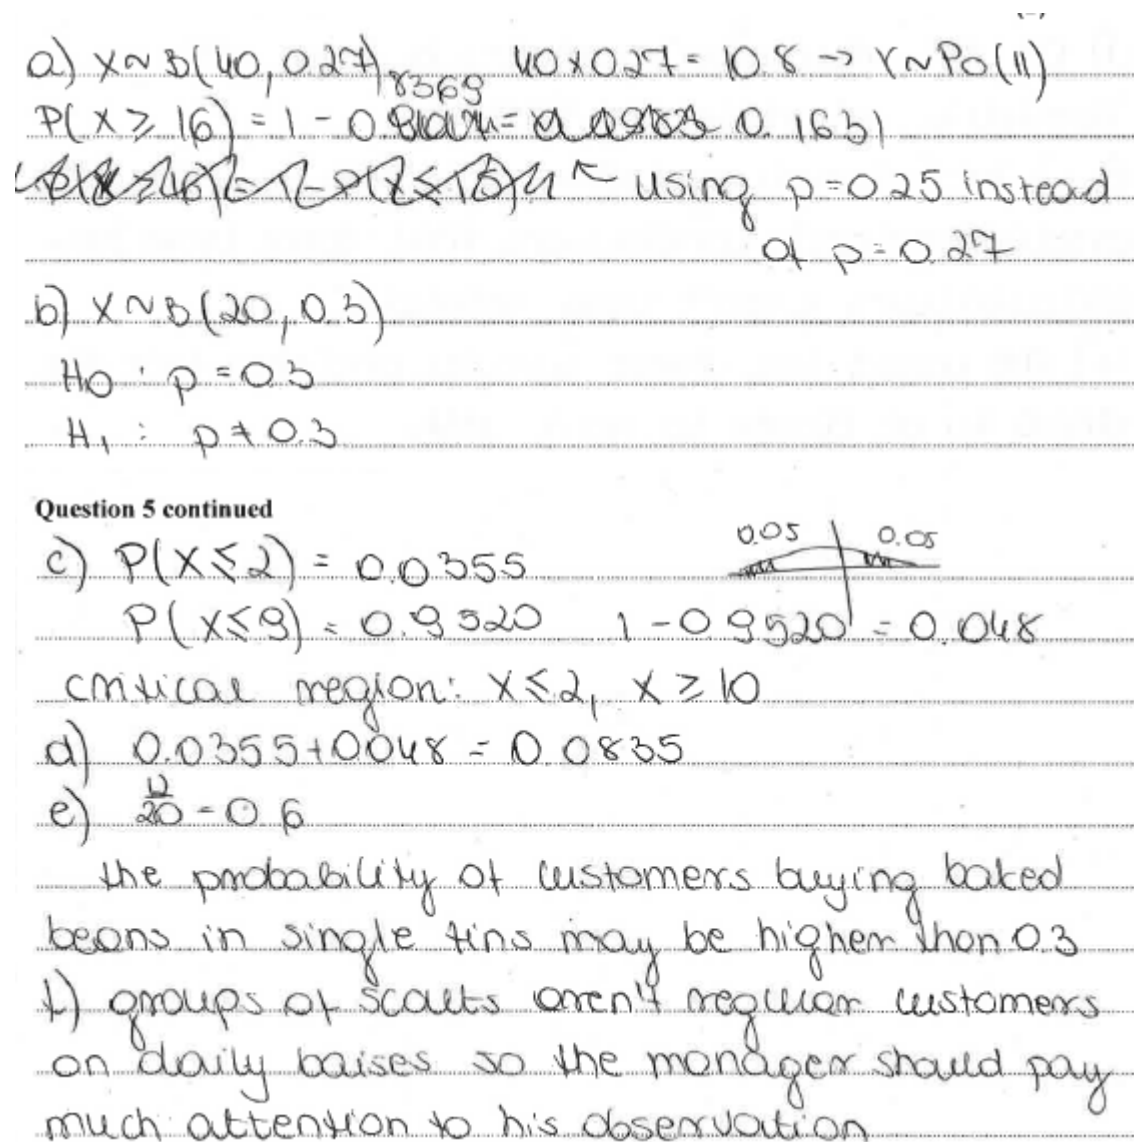 a) X~B(40, 0.27) 40x0.27 = 10.8 -> Y~Po(11)
8369
P(X ≥ 16) = 1 - 0. = 0.1631
using p=0.25 instead
of p=0.27
b) X~B(20, 0.3)
H0: p=0.3
H1: p≠0.3
Question 5 continued
c) P(X≤2) = 0.0355 0.05 0.05
P(X≤9) = 0.9520 1-0.9520 = 0.048
critical region: X≤2, X≥10
d) 0.0355+0.048 = 0.0835
e) 12/20 = 0.6
the probability of customers buying baked
beans in single tins may be higher than 0.3
f) groups of scouts aren't regular customers
on daily baises so the manager should pay
much attention to his observation